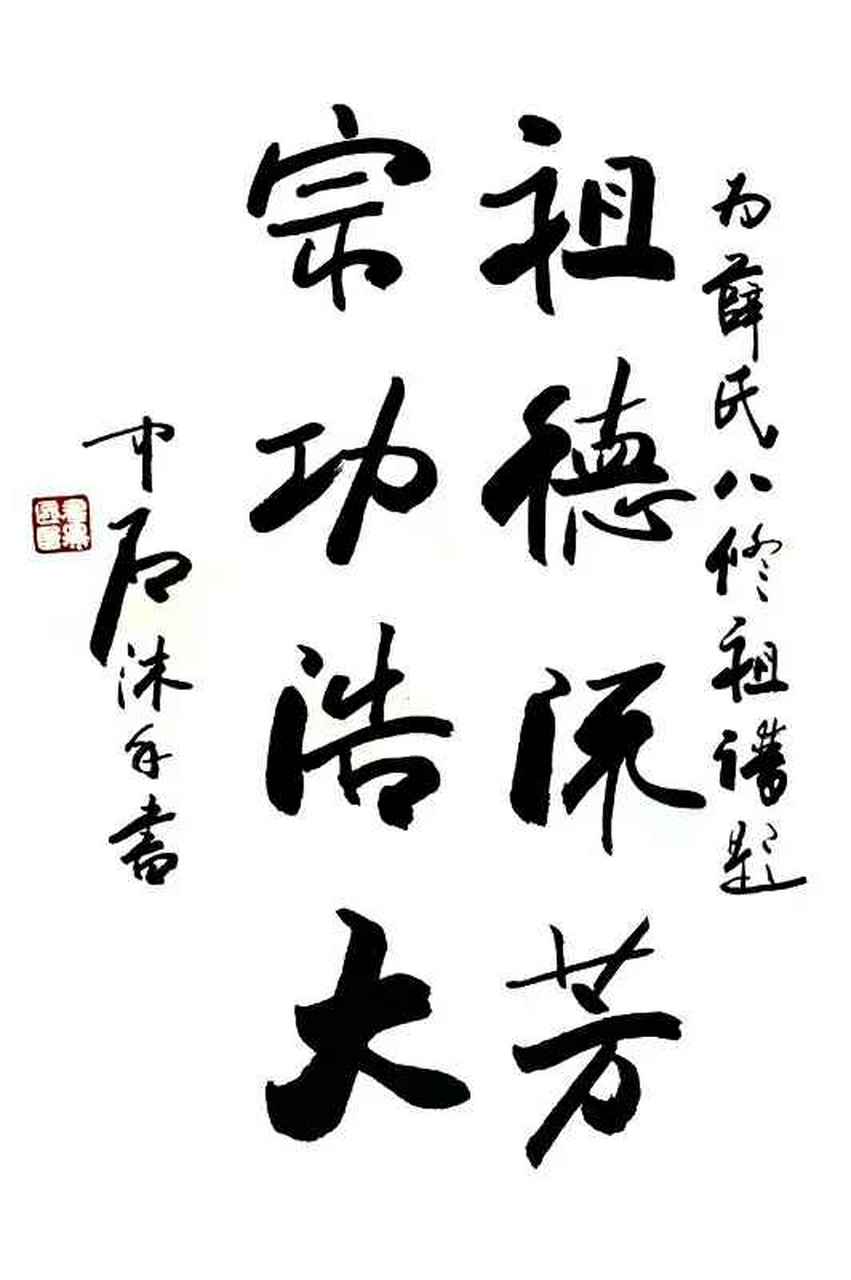 为薛氏八修祖谱题
祖德流芳
宗功浩大
中石沐手书